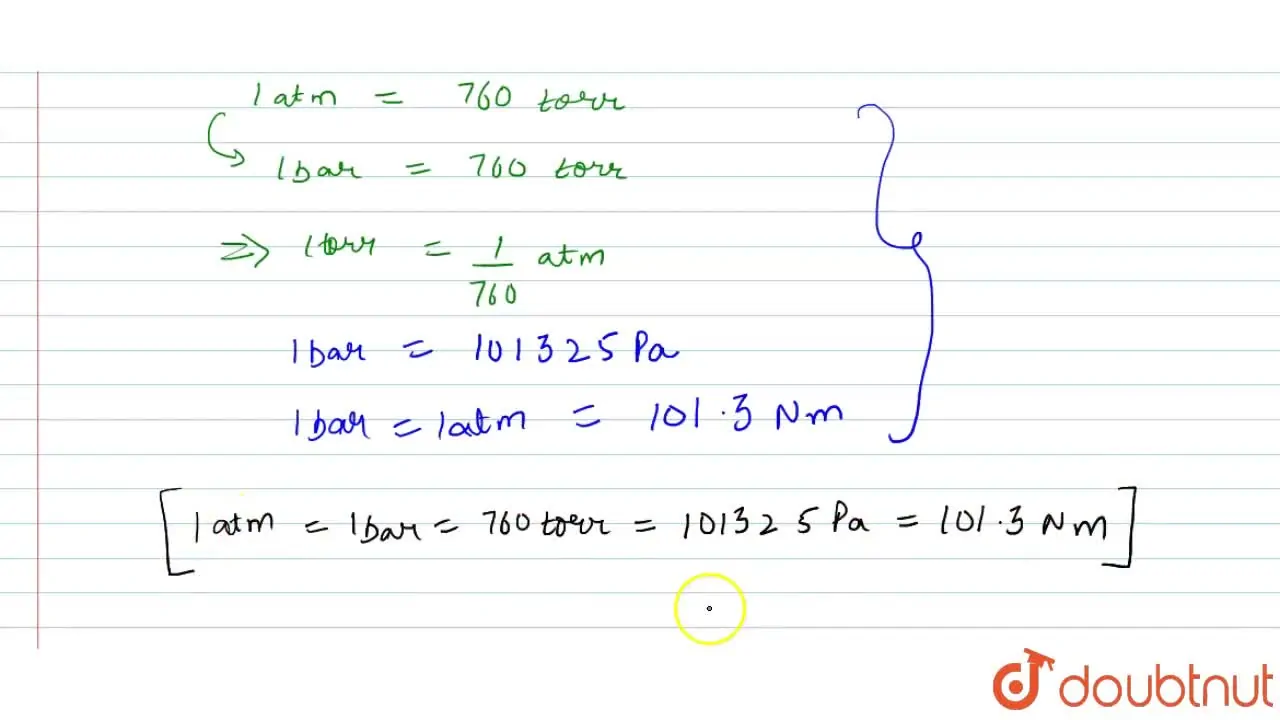 1 atm = 760 torr
1 bar = 760 torr
⇒ 1 torr = 1/760 atm
1 bar = 101325 Pa
1 bar = 1 atm = 101.3 Nm
[1 atm = 1 bar = 760 torr = 101325 Pa = 101.3 Nm]
doubtnut